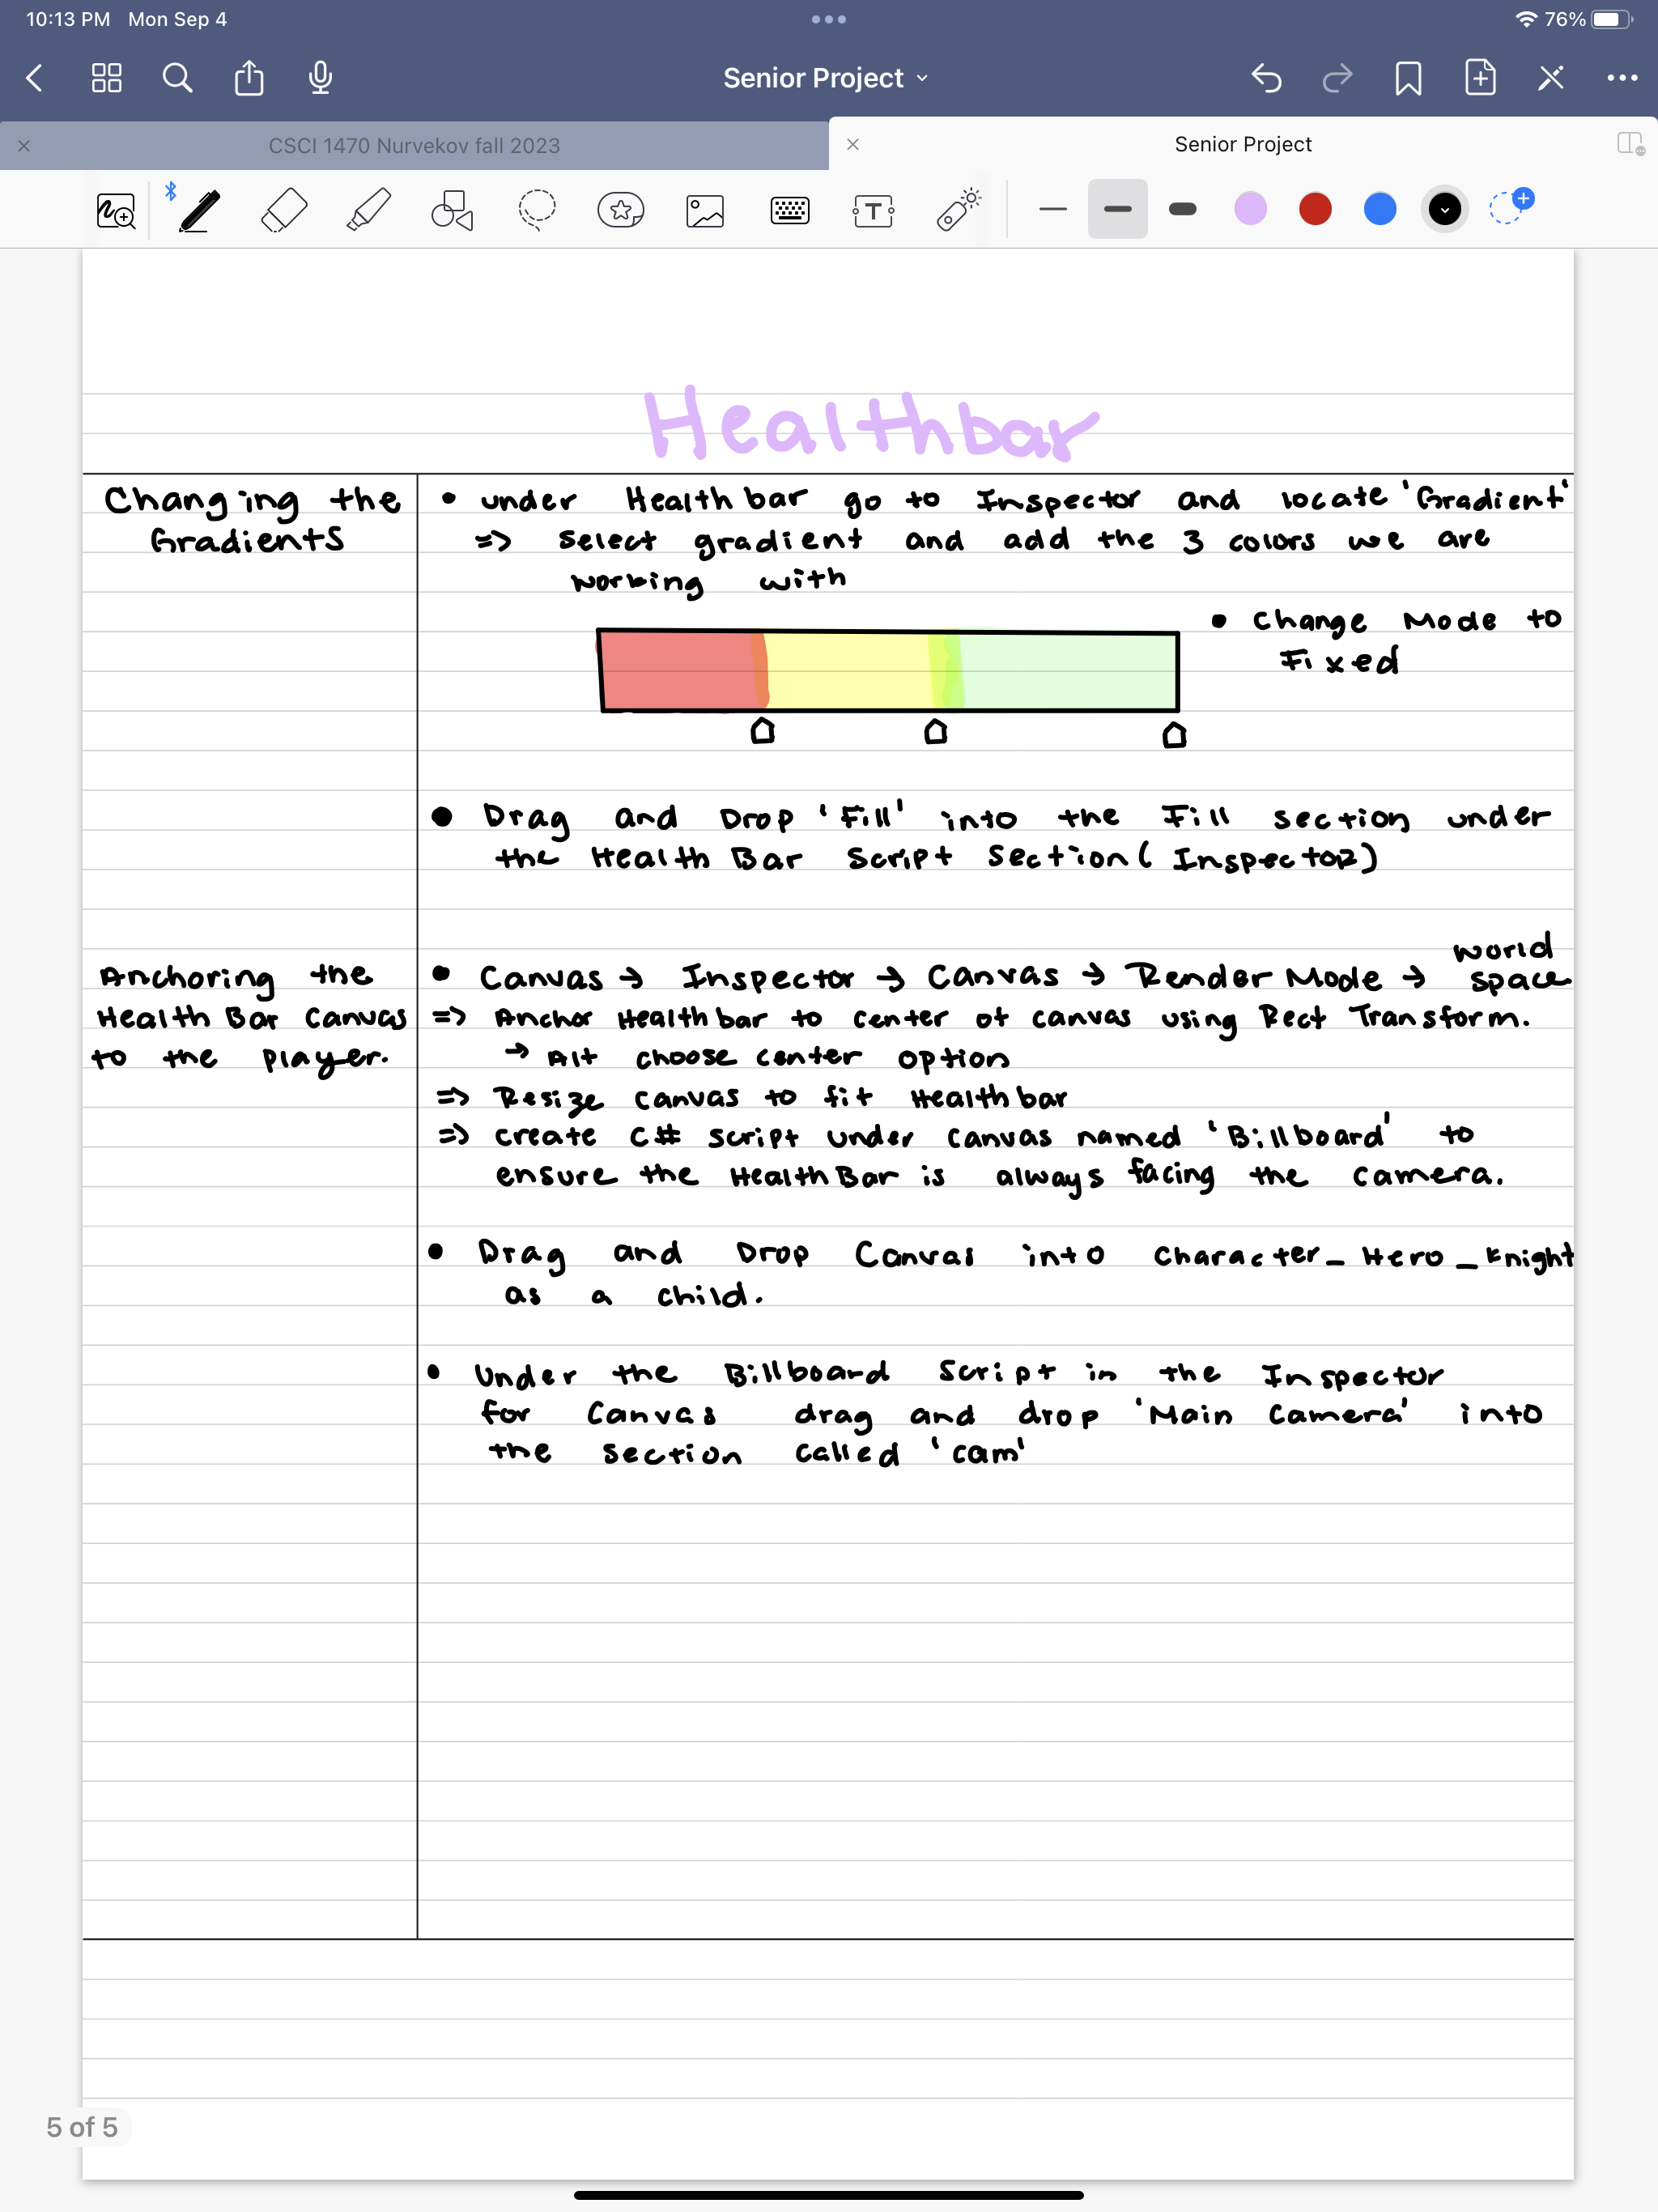 10:13 PM Mon Sep 4
76%
Senior Project
CSCI 1470 Nurvekov fall 2023
Senior Project
Healthbar
Changing the
Gradients
• under Health bar go to Inspector and locate 'Gradient'
=> Select gradient and add the 3 colors we are
working with
• Change Mode to
Fixed
• Drag and Drop 'Fill' into the Fill section under
the Health Bar Script Section (Inspector)
Anchoring the
Health Bar Canvas
to the player.
world
• Canvas → Inspector → Canvas → Render Mode → space
=> Anchor Healthbar to center of canvas using Rect Transform.
→ Alt choose center option
=> Resize canvas to fit Healthbar
=> create C# script under canvas named 'Billboard' to
ensure the HealthBar is always facing the camera.
• Drag and Drop Canvas into Character_Hero_Knight
as a child.
• Under the Billboard Script in the Inspector
for Canvas drag and drop 'Main Camera' into
the section called 'cam'
5 of 5